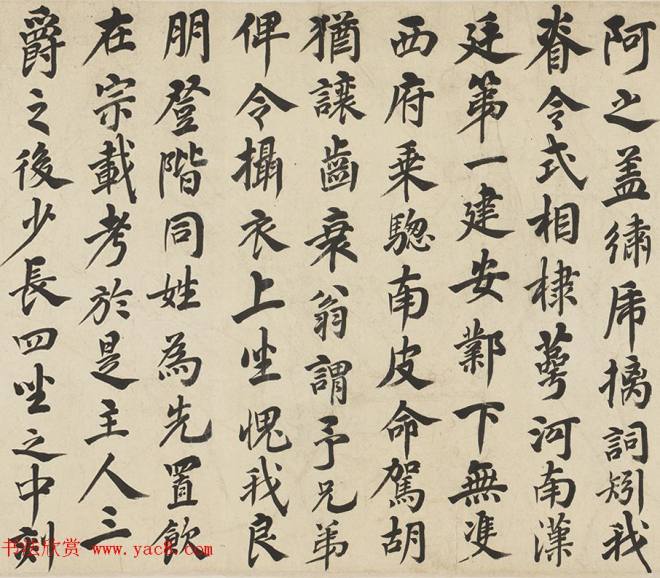 阿之盖繡虎摛詞矧我
眷令式相棣萼河南漢
廷第一建安鄴下無雙
西府乗驄南皮命駕胡
猶讓齒衰翁謂予兄弟
俾令攝衣上坐愧我良
朋登階同姓為先置飲
在宗載考於是主人三
爵之後少長四坐之中刻
书法欣赏 www.yac8.com